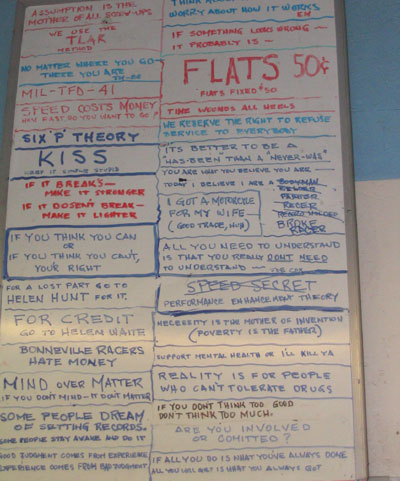 ASSUMPTION IS THE
MOTHER OF ALL SCREW-UPS
WE USE THE
TLAR
METHOD
NO MATTER WHERE YOU GO
THERE YOU ARE
MIL-TFD-41
SPEED COSTS MONEY
HOW FAST DO YOU WANT TO GO?
SIX "P" THEORY
KISS
KEEP IT SIMPLE STUPID
IF IT BREAKS-
MAKE IT STRONGER
IF IT DOESNT BREAK-
MAKE IT LIGHTER
IF YOU THINK YOU CAN
OR
IF YOU THINK YOU CAN'T,
YOUR RIGHT
FOR A LOST PART GO TO
HELEN HUNT FOR IT.
FOR CREDIT
GO TO HELEN WAITE
BONNEVILLE RACERS
HATE MONEY
MIND OVER MATTER
IF YOU DON'T MIND-IT DON'T MATTER
SOME PEOPLE DREAM
OF SETTING RECORDS.
SOME PEOPLE STAY AWAKE AND DO IT
GOOD JUDGMENT COMES FROM EXPERIENCE
EXPERIENCE COMES FROM BAD JUDGMENT
WORRY ABOUT HOW IT WORKS
EH
IF SOMETHING LOOKS WRONG-
IT PROBABLY IS-
FLATS 50¢
FLATS FIXED $50
TIME WOUNDS ALL HEELS
WE RESERVE THE RIGHT TO REFUSE
SERVICE TO EVERYBODY
IT'S BETTER TO BE A
"HAS-BEEN" THAN A "NEVER-WAS"
YOU ARE WHAT YOU BELIEVE YOU ARE
TODAY I BELIEVE I ARE A
PAINTER
RACER
BROKE
RACER
I GOT A MOTORCYCLE
FOR MY WIFE-
(GOOD TRADE, HUH)
ALL YOU NEED TO UNDERSTAND
IS THAT YOU REALLY DON'T NEED
TO UNDERSTAND-
SPEED SECRET
PERFORMANCE ENHANCEMENT THEORY
NECESSITY IS THE MOTHER OF INVENTION
(POVERTY IS THE FATHER)
SUPPORT MENTAL HEALTH OR I'LL KILL YA
REALITY IS FOR PEOPLE
WHO CAN'T TOLERATE DRUGS
IF YOU DONT THINK TOO GOOD
DON'T THINK TOO MUCH.
ARE YOU INVOLVED
OR COMITTED?
IF ALL YOU DO IS WHAT YOU'VE ALWAYS DONE
ALL YOU WILL GET IS WHAT YOU ALWAYS GOT